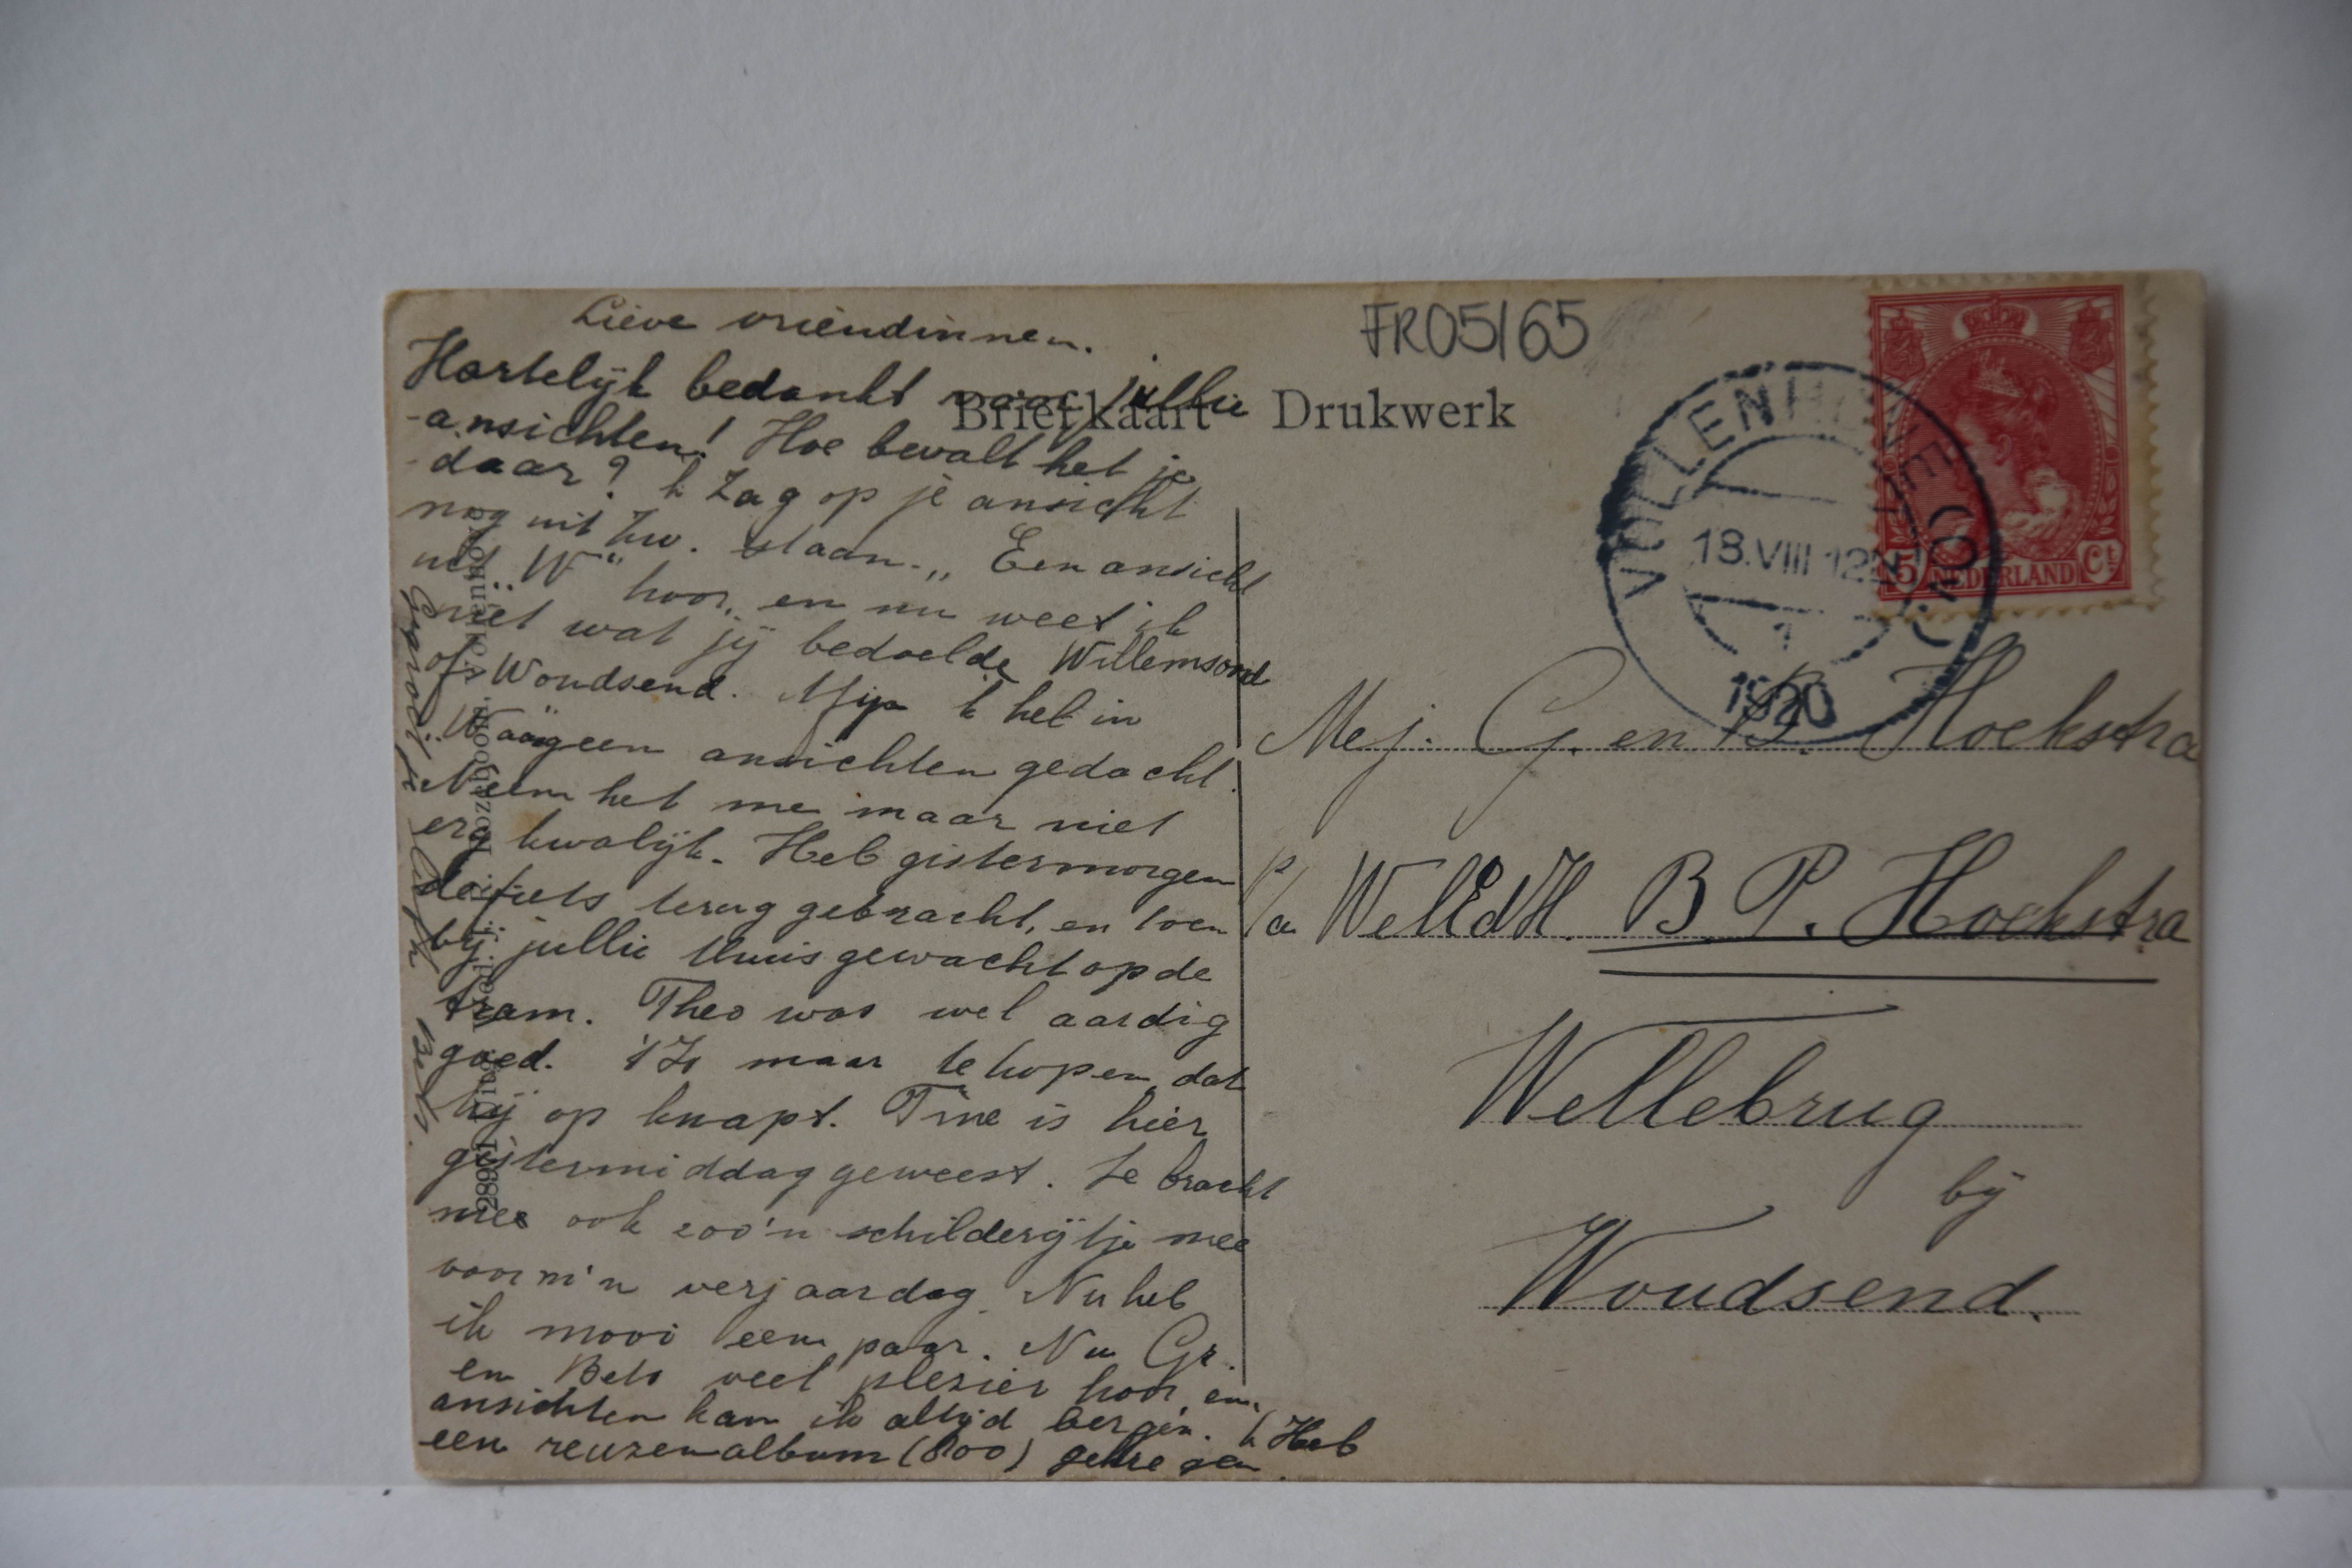 Lieve vriendinnen.
Hartelijk bedankt voor jullie
-ansichten! Hoe bevalt het je
daar? k Zag op je ansicht
nog uit Zw. staan. „Een ansicht
uit „W" hoor, en nu weet ik
niet wat jij bedoelde Willemsoord
of Woudsend. Mijn k heb in
geen ansichten gedacht.
Neem het me maar niet
erg kwalijk. Heb gistermorgen
de fiets terug gebracht, en toen
bij jullie thuis gewacht op de
tram. Theo was wel aardig
goed. 't Is maar te hopen, dat
hij op knapt. Tine is hier
gistermiddag geweest. Ze bracht
mee ook zoo'n schilderijtje mee
voor m'n verjaardag. Nu heb
ik mooi een paar. Nu Gr.
en Bets veel plezier hoor, en
ansichten kan ik altijd bergen. k Heb
een reuzenalbum (800) gekregen.
Bets.
28991 Uitg.
Roozeboom, Vollenhove
FR05/65
Briefkaart Drukwerk
VOLLENHOVE (OV.)
18.VIII 12N
1
1920
5 NEDERLAND Ct
Mej. G. en B. Hoekstra
p/a WelEdH. B P. Hoekstra
Wellebrug
bij
Woudsend.